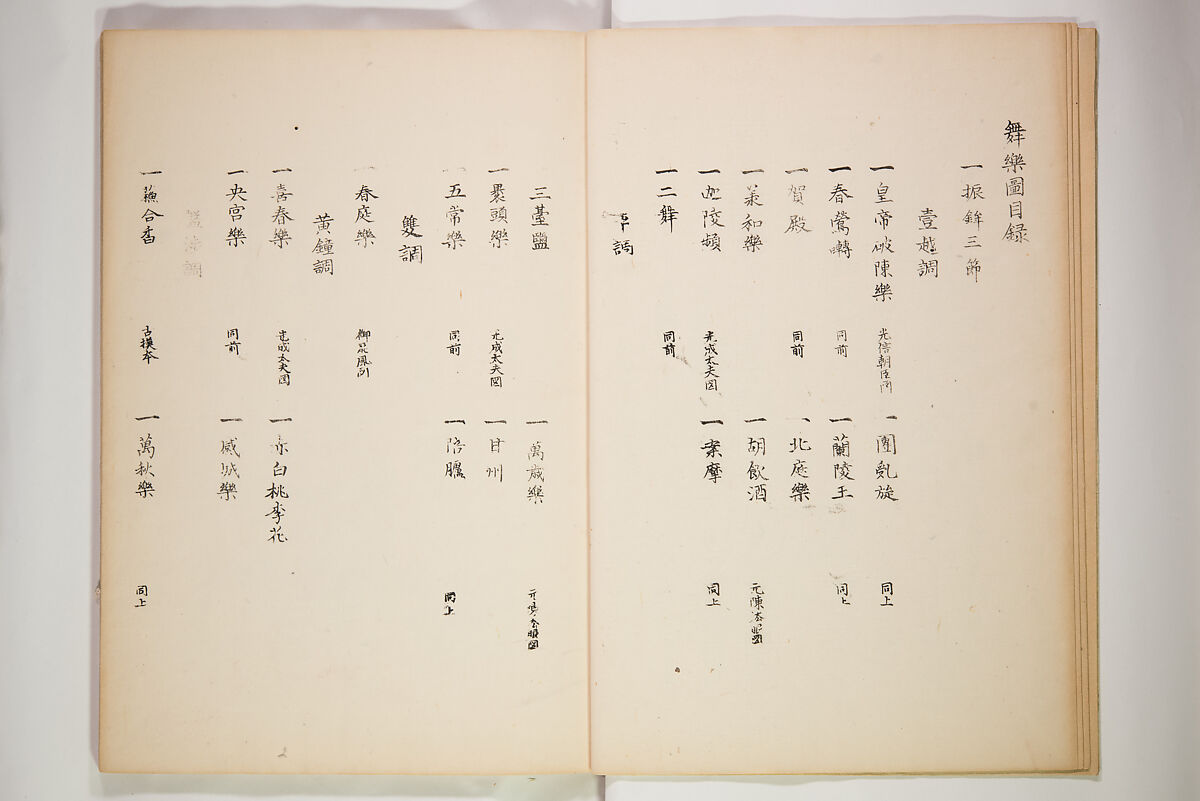 舞樂圖目録
一振鉾三節
壹越調
一皇帝破陳樂 光信朝臣圖 一團亂旋 同上
一春鶯囀 同前 一蘭陵王 同上
一賀殿 同前 一北庭樂
一羕和樂 一胡飲酒 元陳
一迦陵頻 光成太夫図 一案摩 同上
一二舞 同前
調
三臺鹽 一萬歳樂
一褁頭樂 光成太夫図 一甘州
一五常樂 同前 一陪臚 同上
雙調
一春庭樂 御
黄鐘調
一喜春樂 光成太夫図 一赤白桃李花
一央宮樂 同前 一感城樂
調
一蘓合香 古摸本 一萬秋樂 同上